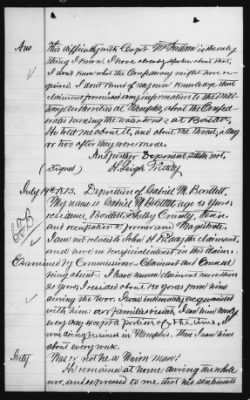 Ans The difficulty with Capt. McFadden is the only
thing I know. I have already spoken about that.
I don't know what the Confederacy might have re-
quired. I don't know of my own knowledge, that
claimant furnished any information to the Mili-
tary authorities at Memphis, about the Confed-
erates
He told me about it, and about the threat, a day
or two after they were made.
And further Deponent saith not.
(Signed)
July 14th 1873. Deposition of Gabriel M. Bartlett.
My name is Gabriel M. Bartlett, age 50 years.
residence Bartlett, Shelby County, Tenn.
and occupation a farmer and Magistrate.
I am not related to John H. the claimant,
and have no beneficial interest in this claim.
Examined by Commissioner. Claimant and Counsel
being absent. I have known claimant more than
20 years. I resided about from him
during the War. I was intimately acquainted
with him: our families visited. I saw him nearly
every day except a portion of the time, I
was doing business in Memphis. Then I saw him
about every week.
Inty Was or not he a Union man?
He remained at home during the whole
war, and expressed to me, that his sentiments